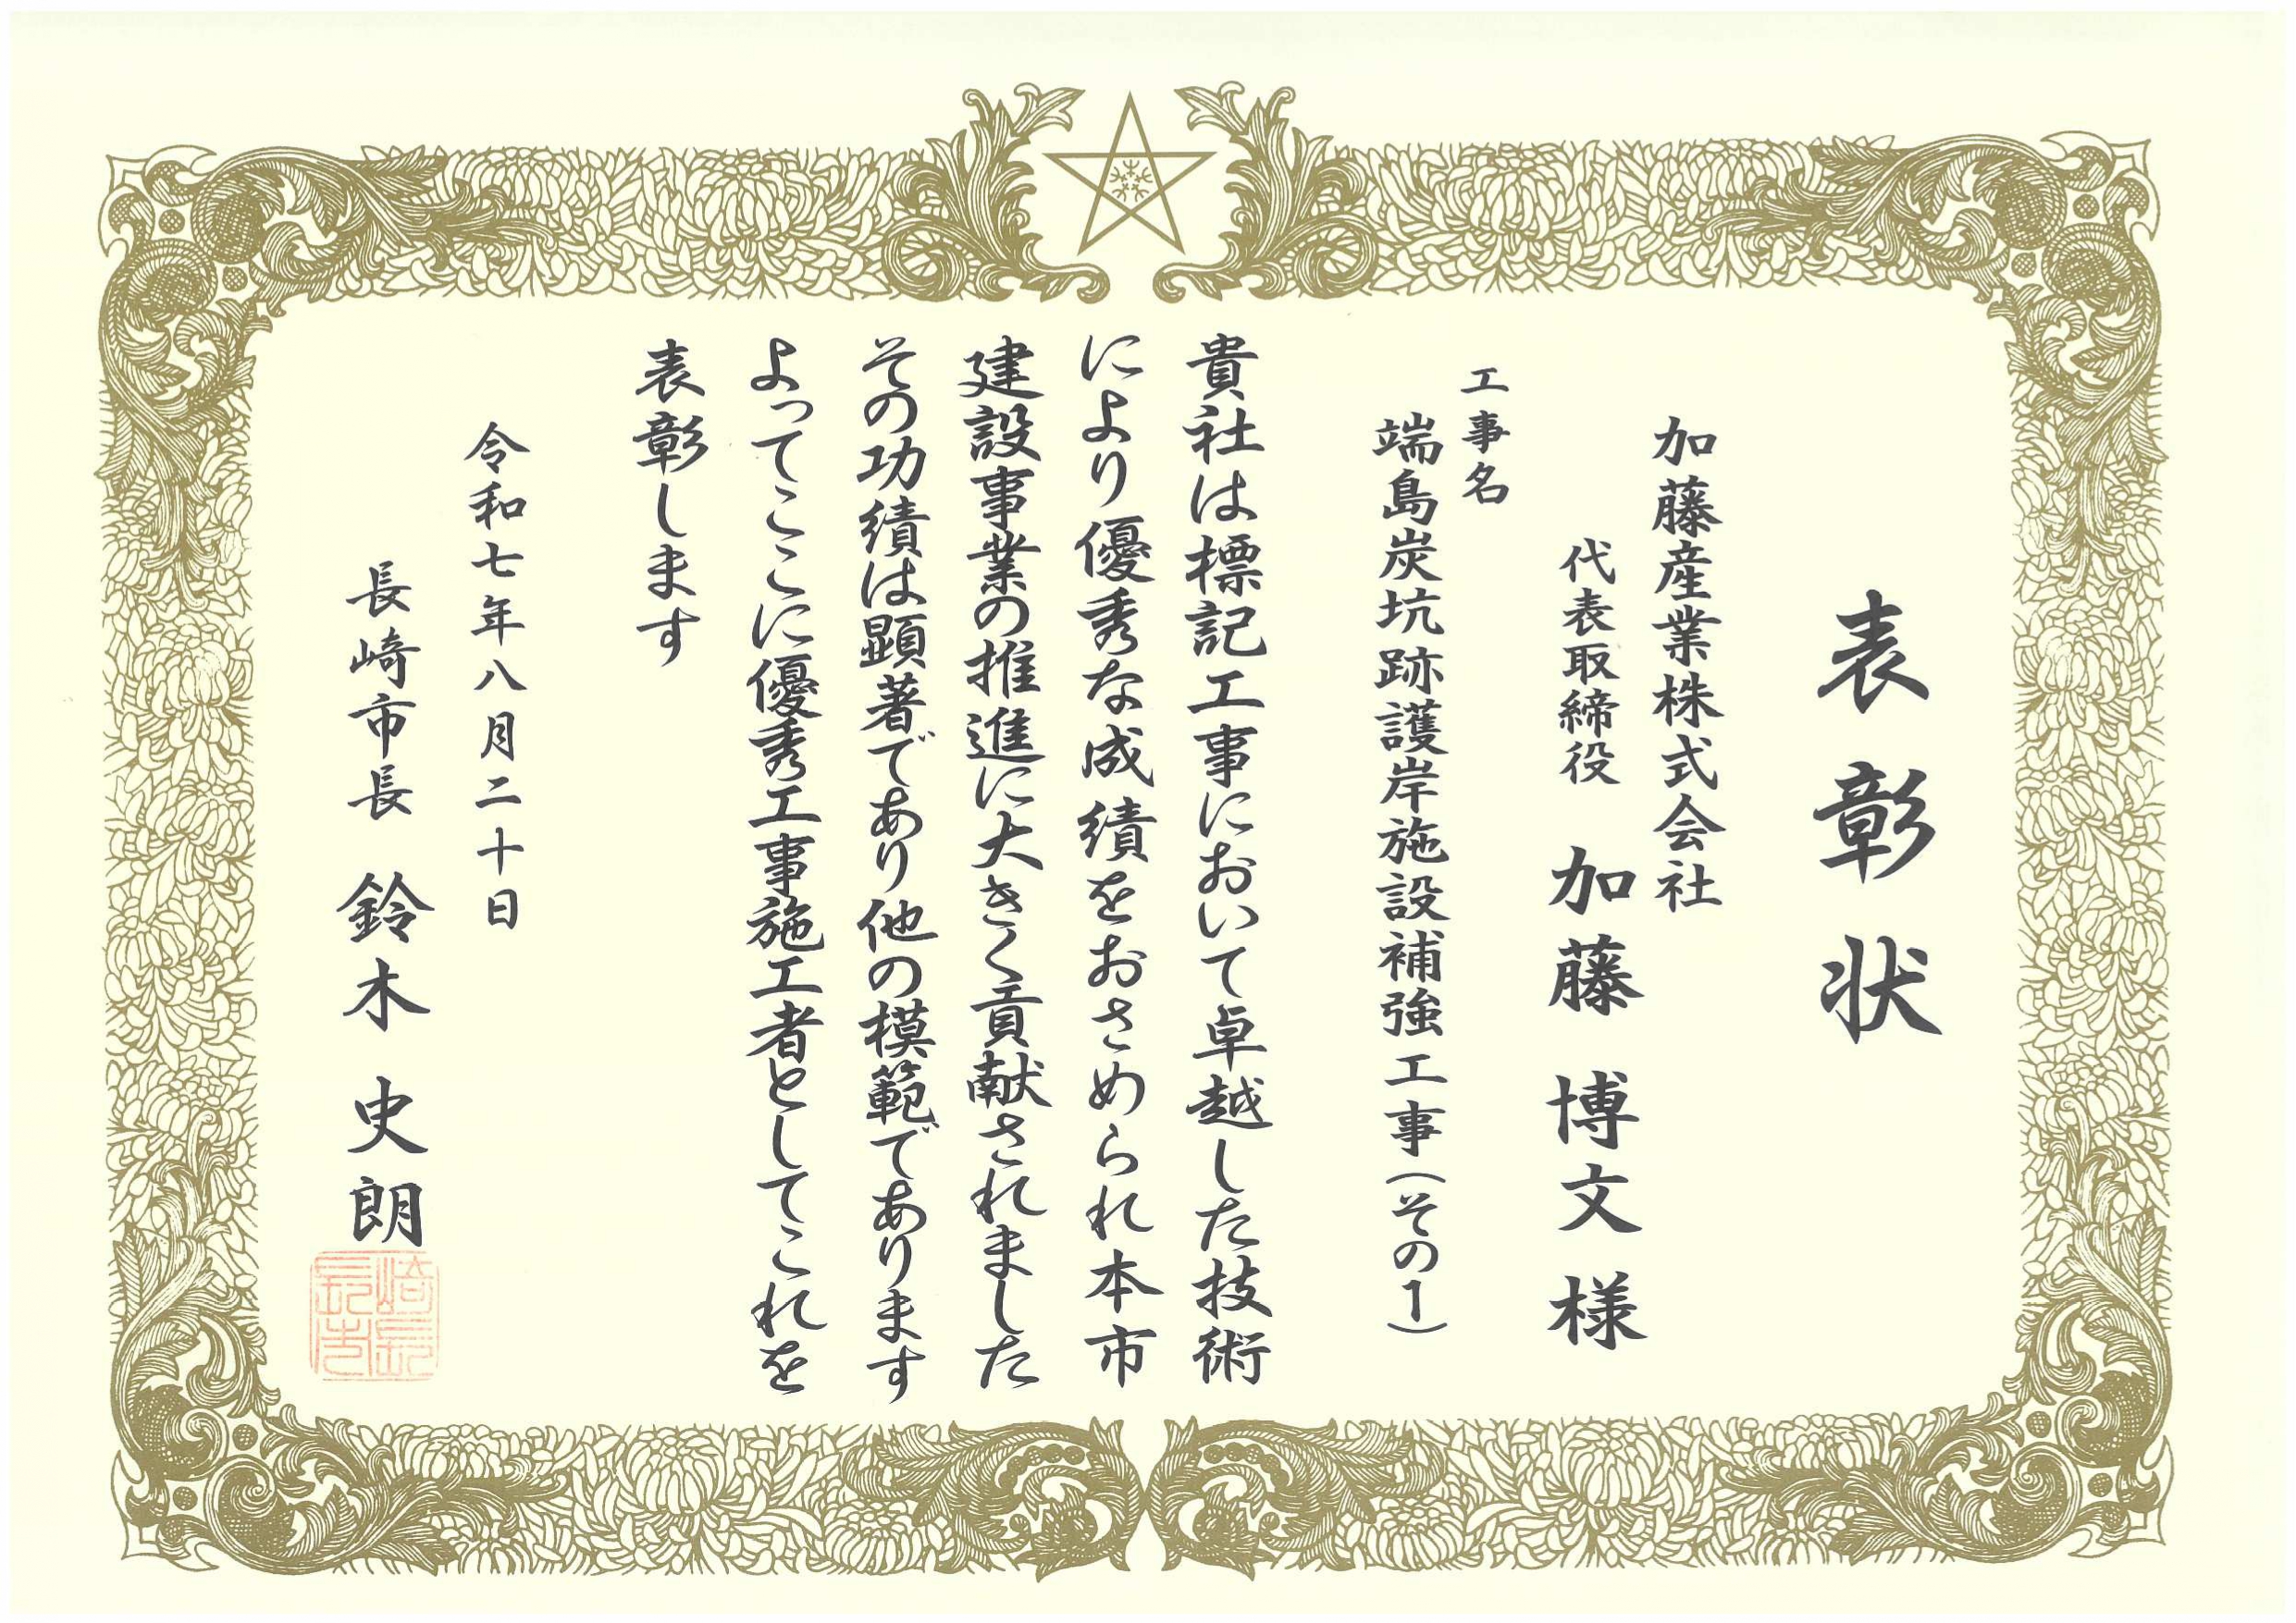 表彰状
加藤産業株式会社
代表取締役 加藤 博文 様
工事名
端島炭坑跡護岸施設補強工事（その１）
貴社は標記工事において卓越した技術
により優秀な成績をおさめられ本市
建設事業の推進に大きく貢献されました
その功績は顕著であり他の模範であります
よってここに優秀工事施工者としてこれを
表彰します
令和七年八月二十日
長崎市長 鈴木 史朗